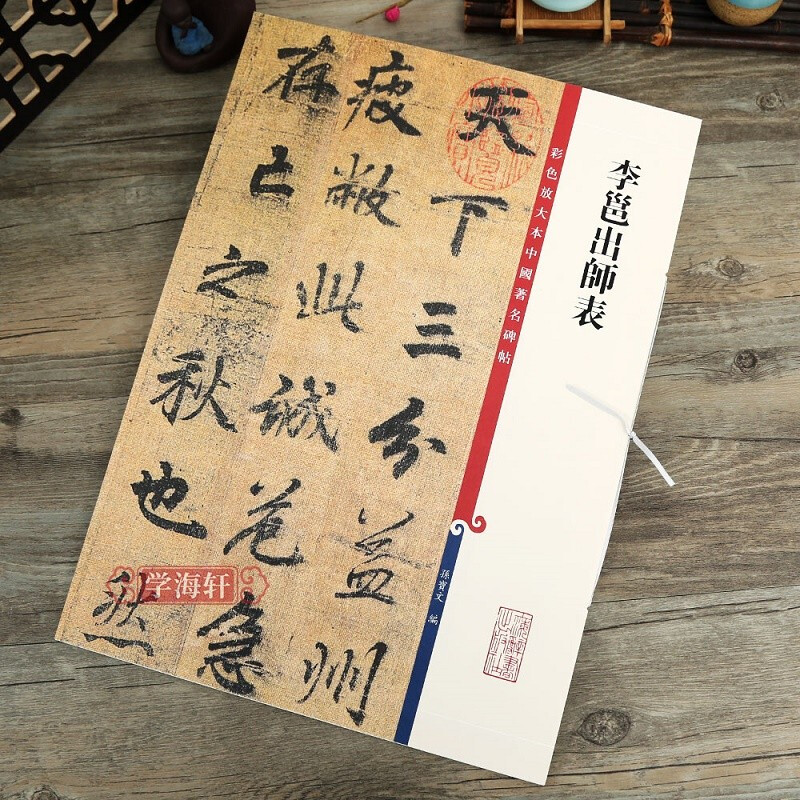 李邕出師表
彩色放大本中國著名碑帖
孫寶文 編
天下三分益州
疲敝此誠危急
存亡之秋也然
学海轩